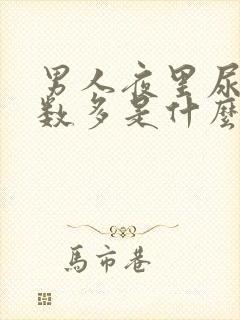 男人夜里尿
数多是什麼
馬市巷